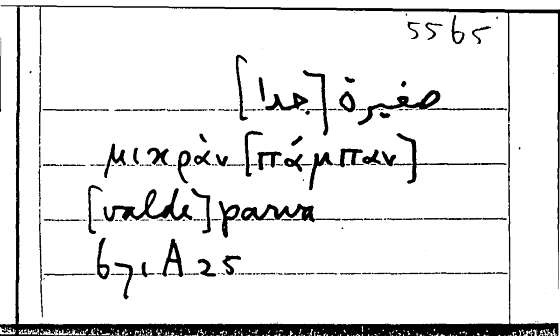 5565
صغيرة [جدا]
μικρὰν [πάμπαν]
[valde] parva
671 A 25